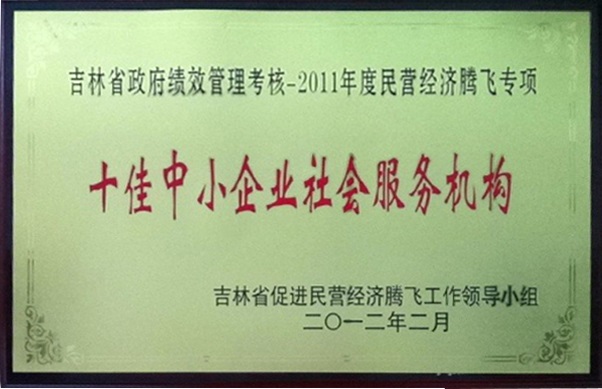 吉林省政府绩效管理考核-2011年度民营经济腾飞专项
十佳中小企业社会服务机构
吉林省促进民营经济腾飞工作领导小组
二〇一二年二月